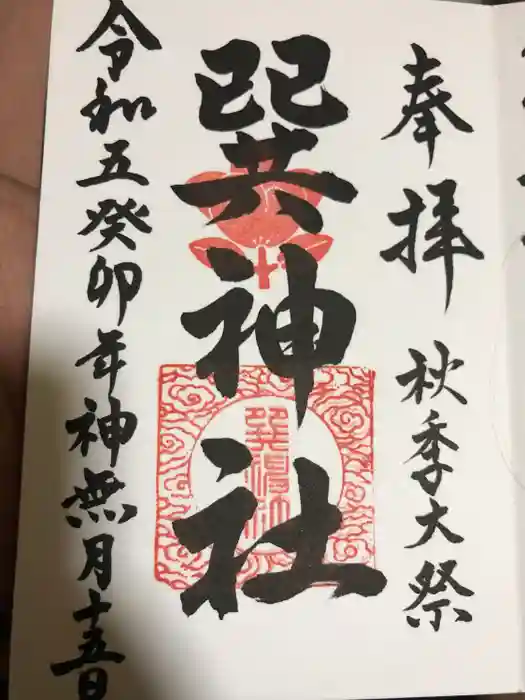 奉拝 秋季大祭
巽神社
令和五癸卯年神無月十五日